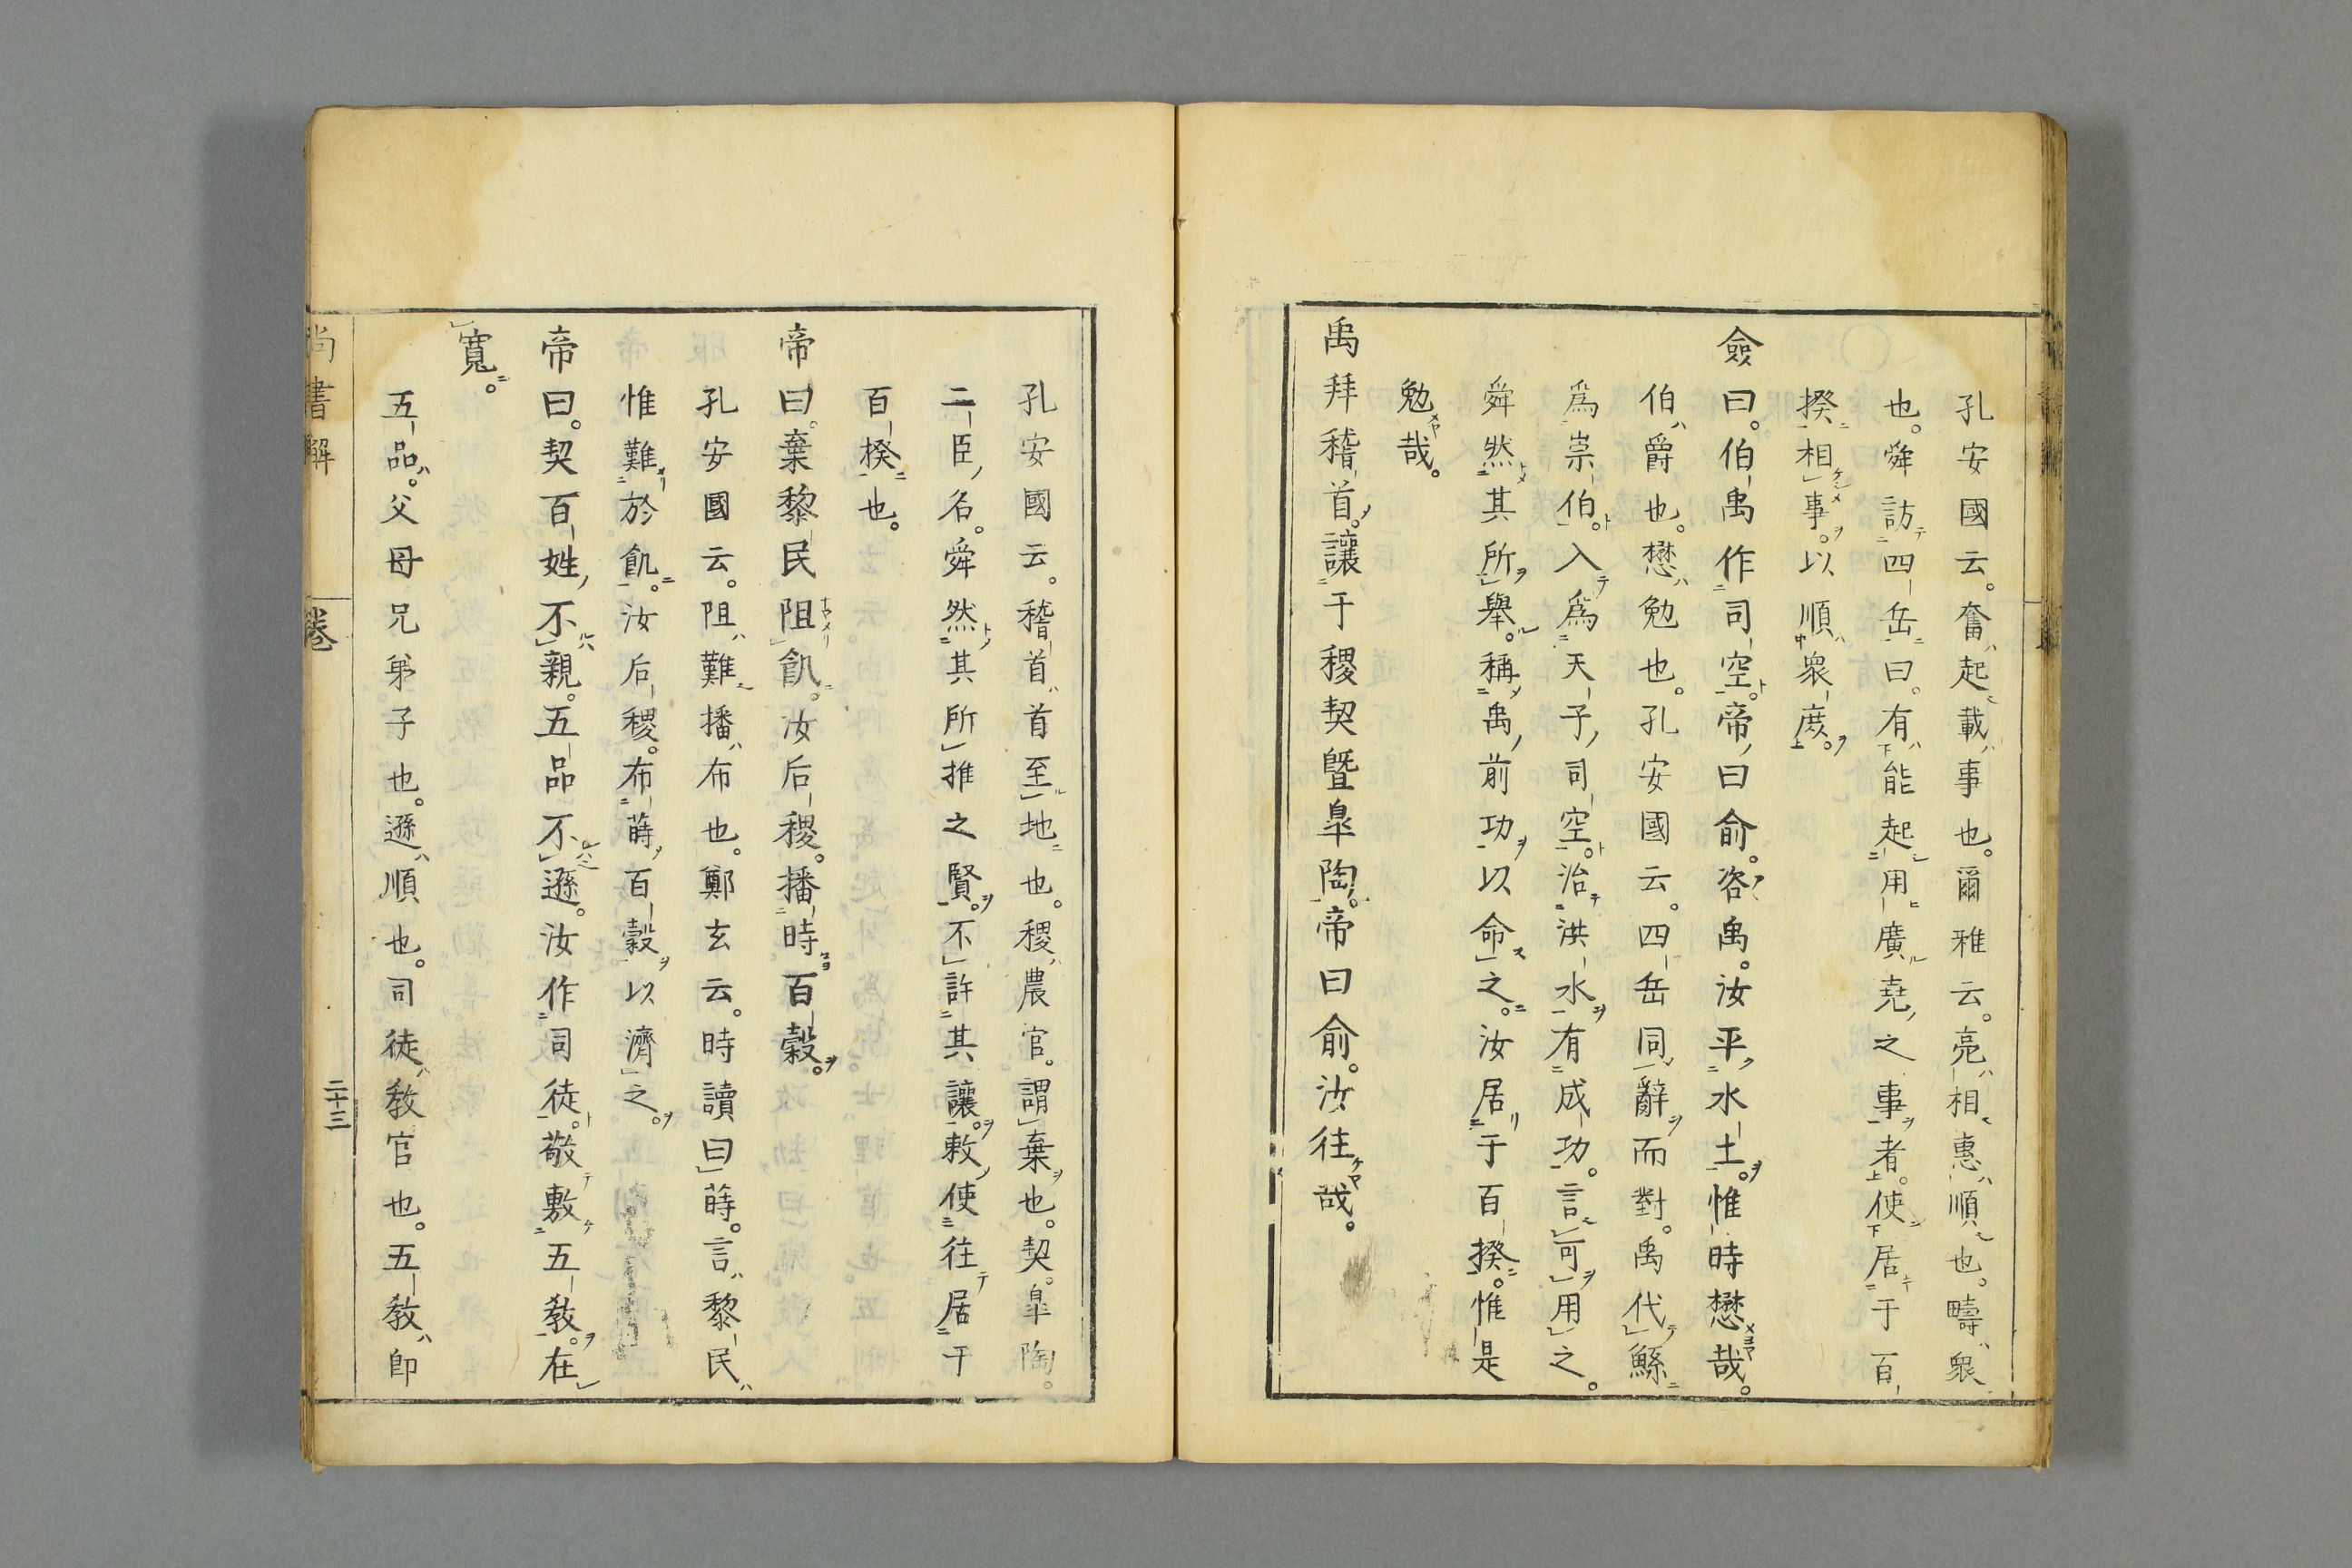 孔安國云。奮起載事也。爾雅云。亮相惠順也。疇衆
也。舜訪四岳曰。有能起用廣堯之事者。使居于百
揆相事。以順衆庶。
僉曰。伯禹作司空。帝曰俞。咨禹。汝平水土。惟時懋哉。
伯爵也。懋勉也。孔安國云。四岳同辭而對。禹代鯀
爲崇伯。入爲天子司空。治洪水有成功。言可用之。
舜然其所舉。稱禹前功以命之。汝居于百揆。惟是
勉哉。
禹拜稽首。讓于稷契曁皐陶。帝曰俞。汝往哉。
孔安國云。稽首首至地也。稷農官。謂棄也。契。皐陶。
二臣名。舜然其所推之賢。不許其讓。敕使往居于
百揆也。
帝曰。棄黎民阻飢。汝后稷。播時百穀。
孔安國云。阻難播布也。鄭玄云。時讀曰蒔。言黎民
惟難於飢。汝后稷。布蒔百穀以濟之。
帝曰。契百姓不親。五品不遜。汝作司徒。敬敷五教。在
寬。
五品。父母兄弟子也。遜順也。司徒教官也。五教即
尚書解
卷
二十三